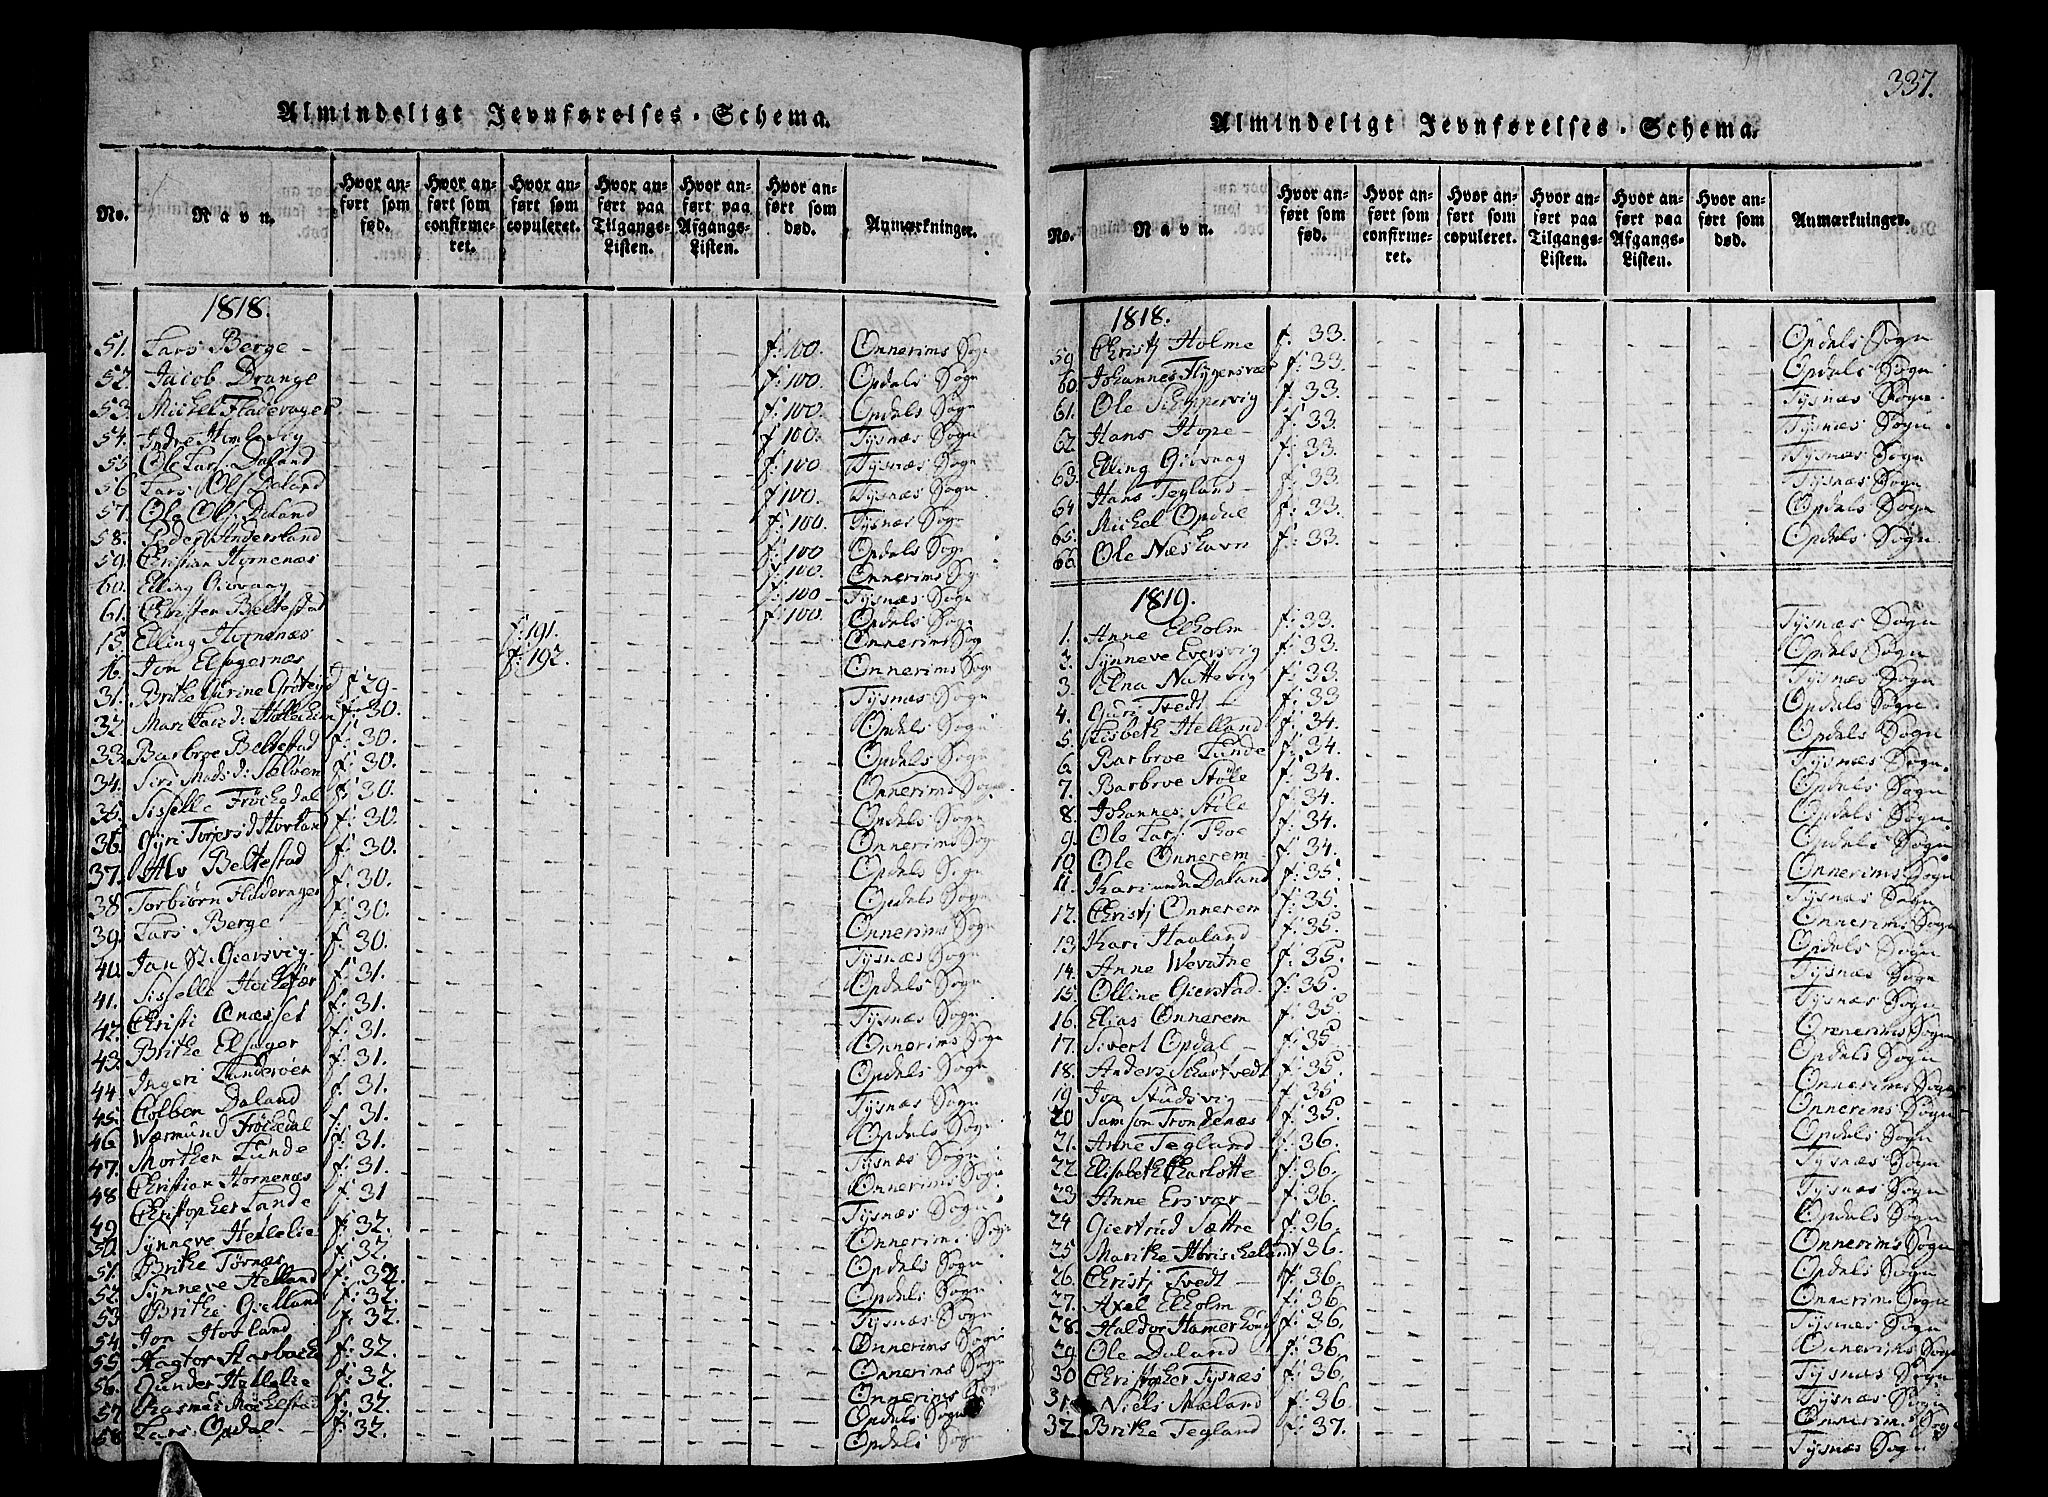 Almindeligt Jevnførelses-Schema.
No. Navn. Hvor anført som fød. Hvor anført som confirmeret. Hvor anført som copuleret. Hvor anført paa Tilgangs-Listen. Hvor anført paa Afgangs-Listen. Hvor anført som død. Anmærkninger.
1818.
51. Lars Berge f: 100. Onnerims Sogn
52. Jacob Drange f: 100. Opdals Sogn
53. Michel Fladerager f: 100. Opdals Sogn
54. Indre Himle f: 100. Tysnæs Sogn
55. Ole Lars: Daland f: 100. Tysnæs Sogn
56 Lars Ols: Daland f: 100. Tysnæs Sogn
57. Ole Ols: Daland f: 100. Tysnæs Sogn
58. Peder Anderland f: 100 Opdals Sogn
59. Christian Hornenæs f: 100. Onnerims Sog
60. Elling Giovaag f: 100 Tysnæs Sogn
61. Christen Beltestad f: 100. Opdals Sogn
15. Elling Hornenæs f: 191. Onnerims Sog
16. Jon Elsagernæs f: 192. Onnerims Sogn
31. Brithe Gurine f: 29 Tysnæs Sogn
32 Mari f: 30. Opdals Sogn
33. Barbroe Beltestad f: 30. Opdals Sogn
34. Siri Mads d: Seløen f: 30. Onnerims Sogn
35. Sisselle Frøchedal f: 30. Opdals Sogn
36. Gyri Torjers d: Hovland f: 30. Onnerims Sogn
37. Alv Beltestad f: 30. Opdals Sogn
38 Torbiørn Fladerager f: 30. Opdals Sogn
39. Lars Berge f: 30. Onnerims Sogn
40. Jan St: Giersvig f: 30. Tysnæs Sogn
41. Sisselle f: 31. Opdals Sogn
42. Christi Onæsset f: 31. Tysnæs Sogn
43. Brithe Elsager f: 31. Onnerims Sogn
44 Ingeri Lunderøen f: 31. Opdals Sogn
45. Colben Daland f: 31. Tysnæs Sogn
46 Værmund Frøchedal f: 31. Opdals Sogn
47. Morthen Lunde f: 31. Tysnæs Sogn
48 Christian Hornenæs f: 31. Onnerims Sogn
49. Christopher Lande f: 31 Tysnæs Sogn
50. Synneve Hellelie f: 32. Onnerims Sogn
51. Brithe Tørnæs f: 32. Opdals Sogn
52. Synneve Helland f: 32. Opdals Sogn
53 Brithe Gielland f: 32. Tysnæs Sogn
54. Jon Hovland f: 32. Onnerims Sogn
55 Hagtor f: 32. Onnerims Sogn
56. Gunder Hellelie f: 32. Onnerims Sogn
57 Rasmus Møchestad f: 32. Opdals Sogn
58 Lars Opdal f: 32. Opdals Sogn
337.
Almindeligt Jevnførelses-Schema.
No. Navn. Hvor anført som fød. Hvor anført som confirmeret. Hvor anført som copuleret. Hvor anført paa Tilgangs-Listen. Hvor anført paa Afgangs-Listen. Hvor anført som død. Anmærkninger.
1818.
59 Christj Holme f: 33. Opdals Sogn
60. Johannes Flygensvær f: 33. Opdals Sogn
61. Ole Schippervig f: 33. Tysnæs Sogn
62. Hans Hope f: 33. Tysnæs Sogn
63. Elling Giovaag f: 33. Tysnæs Sogn
64 Hans Tegland f: 33. Tysnæs Sogn
65. Michel Opdal f: 33. Opdals Sogn
66 Ole Næshavn f: 33. Opdals Sogn
1819.
1. Anne Elholm f: 33. Tysnæs Sogn
3. Synneve Eversvig f: 33. Opdals Sogn
3. Elna Nattevig f: 33. Tysnæs Sogn
4. Guri Tvedt f: 33 Opdals Sogn
5. Lisbeth Helland f: 34. Opdals Sogn
6. Barbroe Lunde f: 34. Tysnæs Sogn
7. Barbroe Støle f: 34. Opdals Sogn
8. Johannes Stile f: 34. Opdals Sogn
9. Ole Lars: Thoe f: 34. Opdals Sogn
10. Ole Onnerem f: 34. Onnerims Sogn
11. Kari Daland f: 35. Tysnæs Sogn
12. Christj Onnerem f: 35. Onnerims Sogn
13 Kari Haaland f: 35. Opdals Sogn
14. Anne Wevatne f: 35. Tysnæs Sogn
15. Olline Gierstad f: 35. Tysnæs Sogn
16. Elias Onnerem f: 35 Onnerims Sogn
17. Sivert Opdal f: 35. Opdals Sogn
18. Anders f: 35. Onnerims Sogn
19. Jon Studsvig f: 35 Onnerims Sogn
20 Samson Trondenæs f: 35. Opdals Sogn
21. Anne Tegland f: 36. Tysnæs Sogn
22. Elisabeth Charlotte f: 36. Tysnæs Sogn
23 Anne Ersvær f: 36. Opdals Sogn
24 Giertrud Sættre f: 36. Onnerims Sogn
25 Marithe f: 36. Opdals Sogn
26. Christj Tvedt f: 36. Onnerims Sogn
27. Axel Elholm f: 36. Tysnæs Sogn
28. Haldor f: 36. Onnerims Sogn
29 Ole Daland f: 36. Tysnæs Sogn
30 Christopher Tysnæs f: 36. Tysnæs Sogn
31. Niels Mæland f: 36 Onnerims Sogn
32 Brithe Tegland f: 37. Tysnæs Sogn